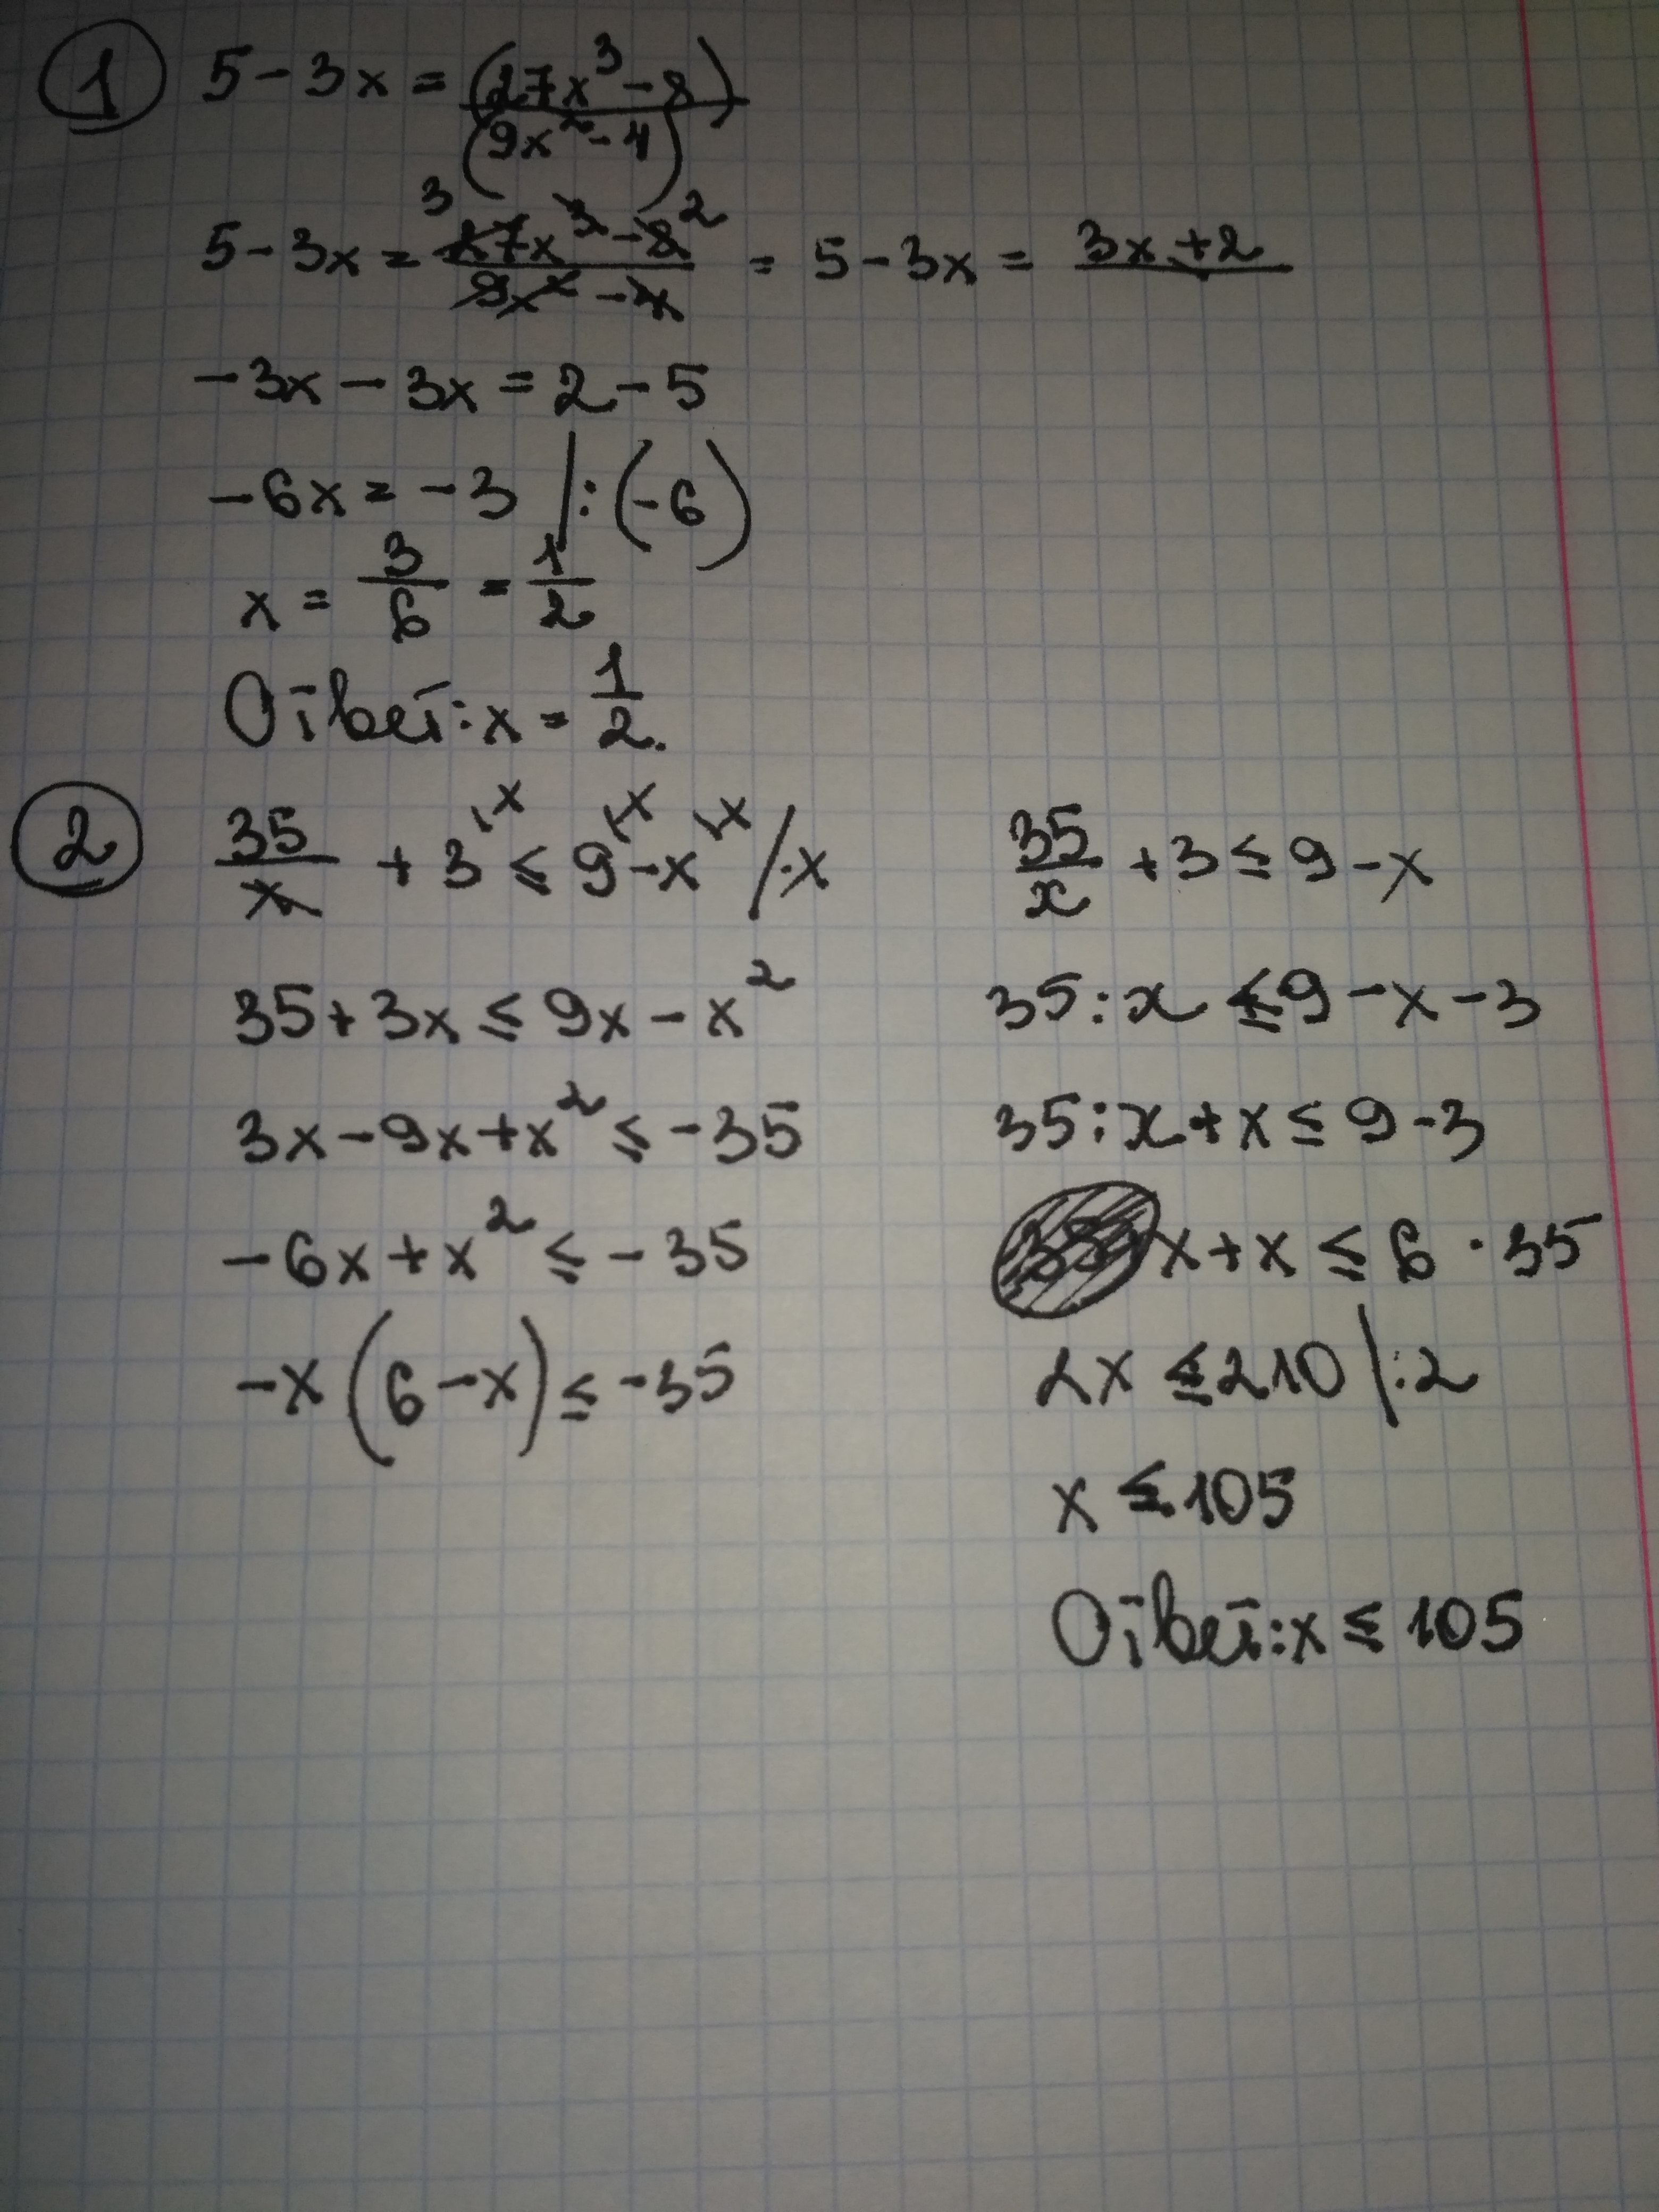 1 5-3x = (27x³-8)/(9x²-4)
5-3x = 27x³-8/9x²-4 3 2 = 5-3x = 3x+2
-3x-3x = 2-5
-6x = -3 |:(-6)
x = 3/6 = 1/2
Ответ: x = 1/2.
2 35/x + 3 ≤ 9 - x /·x
35+3x ≤ 9x-x²
3x-9x+x² ≤ -35
-6x+x² ≤ -35
-x(6-x) ≤ -35
35/x + 3 ≤ 9-x
35:x ≤ 9-x-3
35:x+x ≤ 9-3
x+x ≤ 6·35
2x ≤ 210 |:2
x ≤ 105
Ответ: x ≤ 105